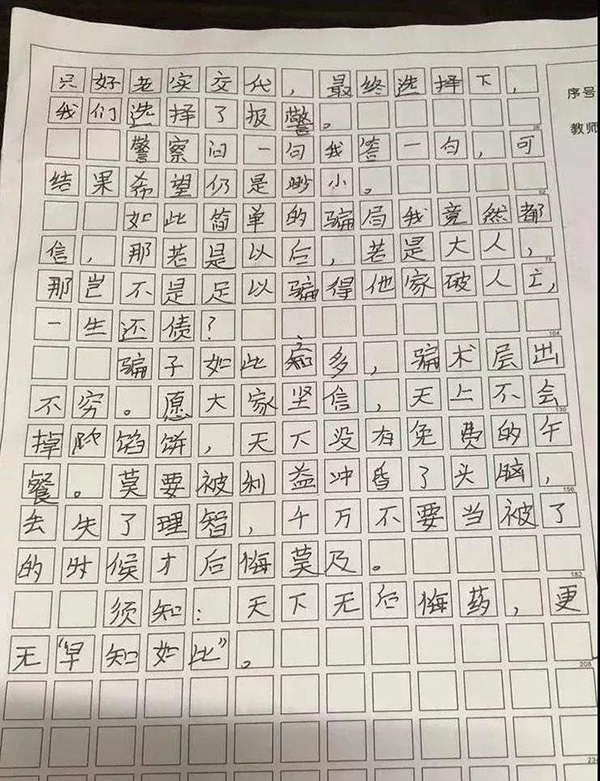 只好老实交代，最终选择下，
我们选择了报警。
警察问一句我答一句，可
结果希望仍是眇小。
如此简单的骗局我竟然都
信，那若是以后，若是大人，
那岂不是足以骗得他家破人亡，
一生还债？
骗子如此之多，骗术层出
不穷。愿大家坚信，天上不会
掉陀馅饼，天下没有免费的午
餐。莫要被利益冲昏了头脑，
去失了理智，千万不要当被了
的时候才后悔莫及。
须知：天下无后悔药，更
无“早知如比”。
序号
教师
26
52
78
104
130
156
182
208
234